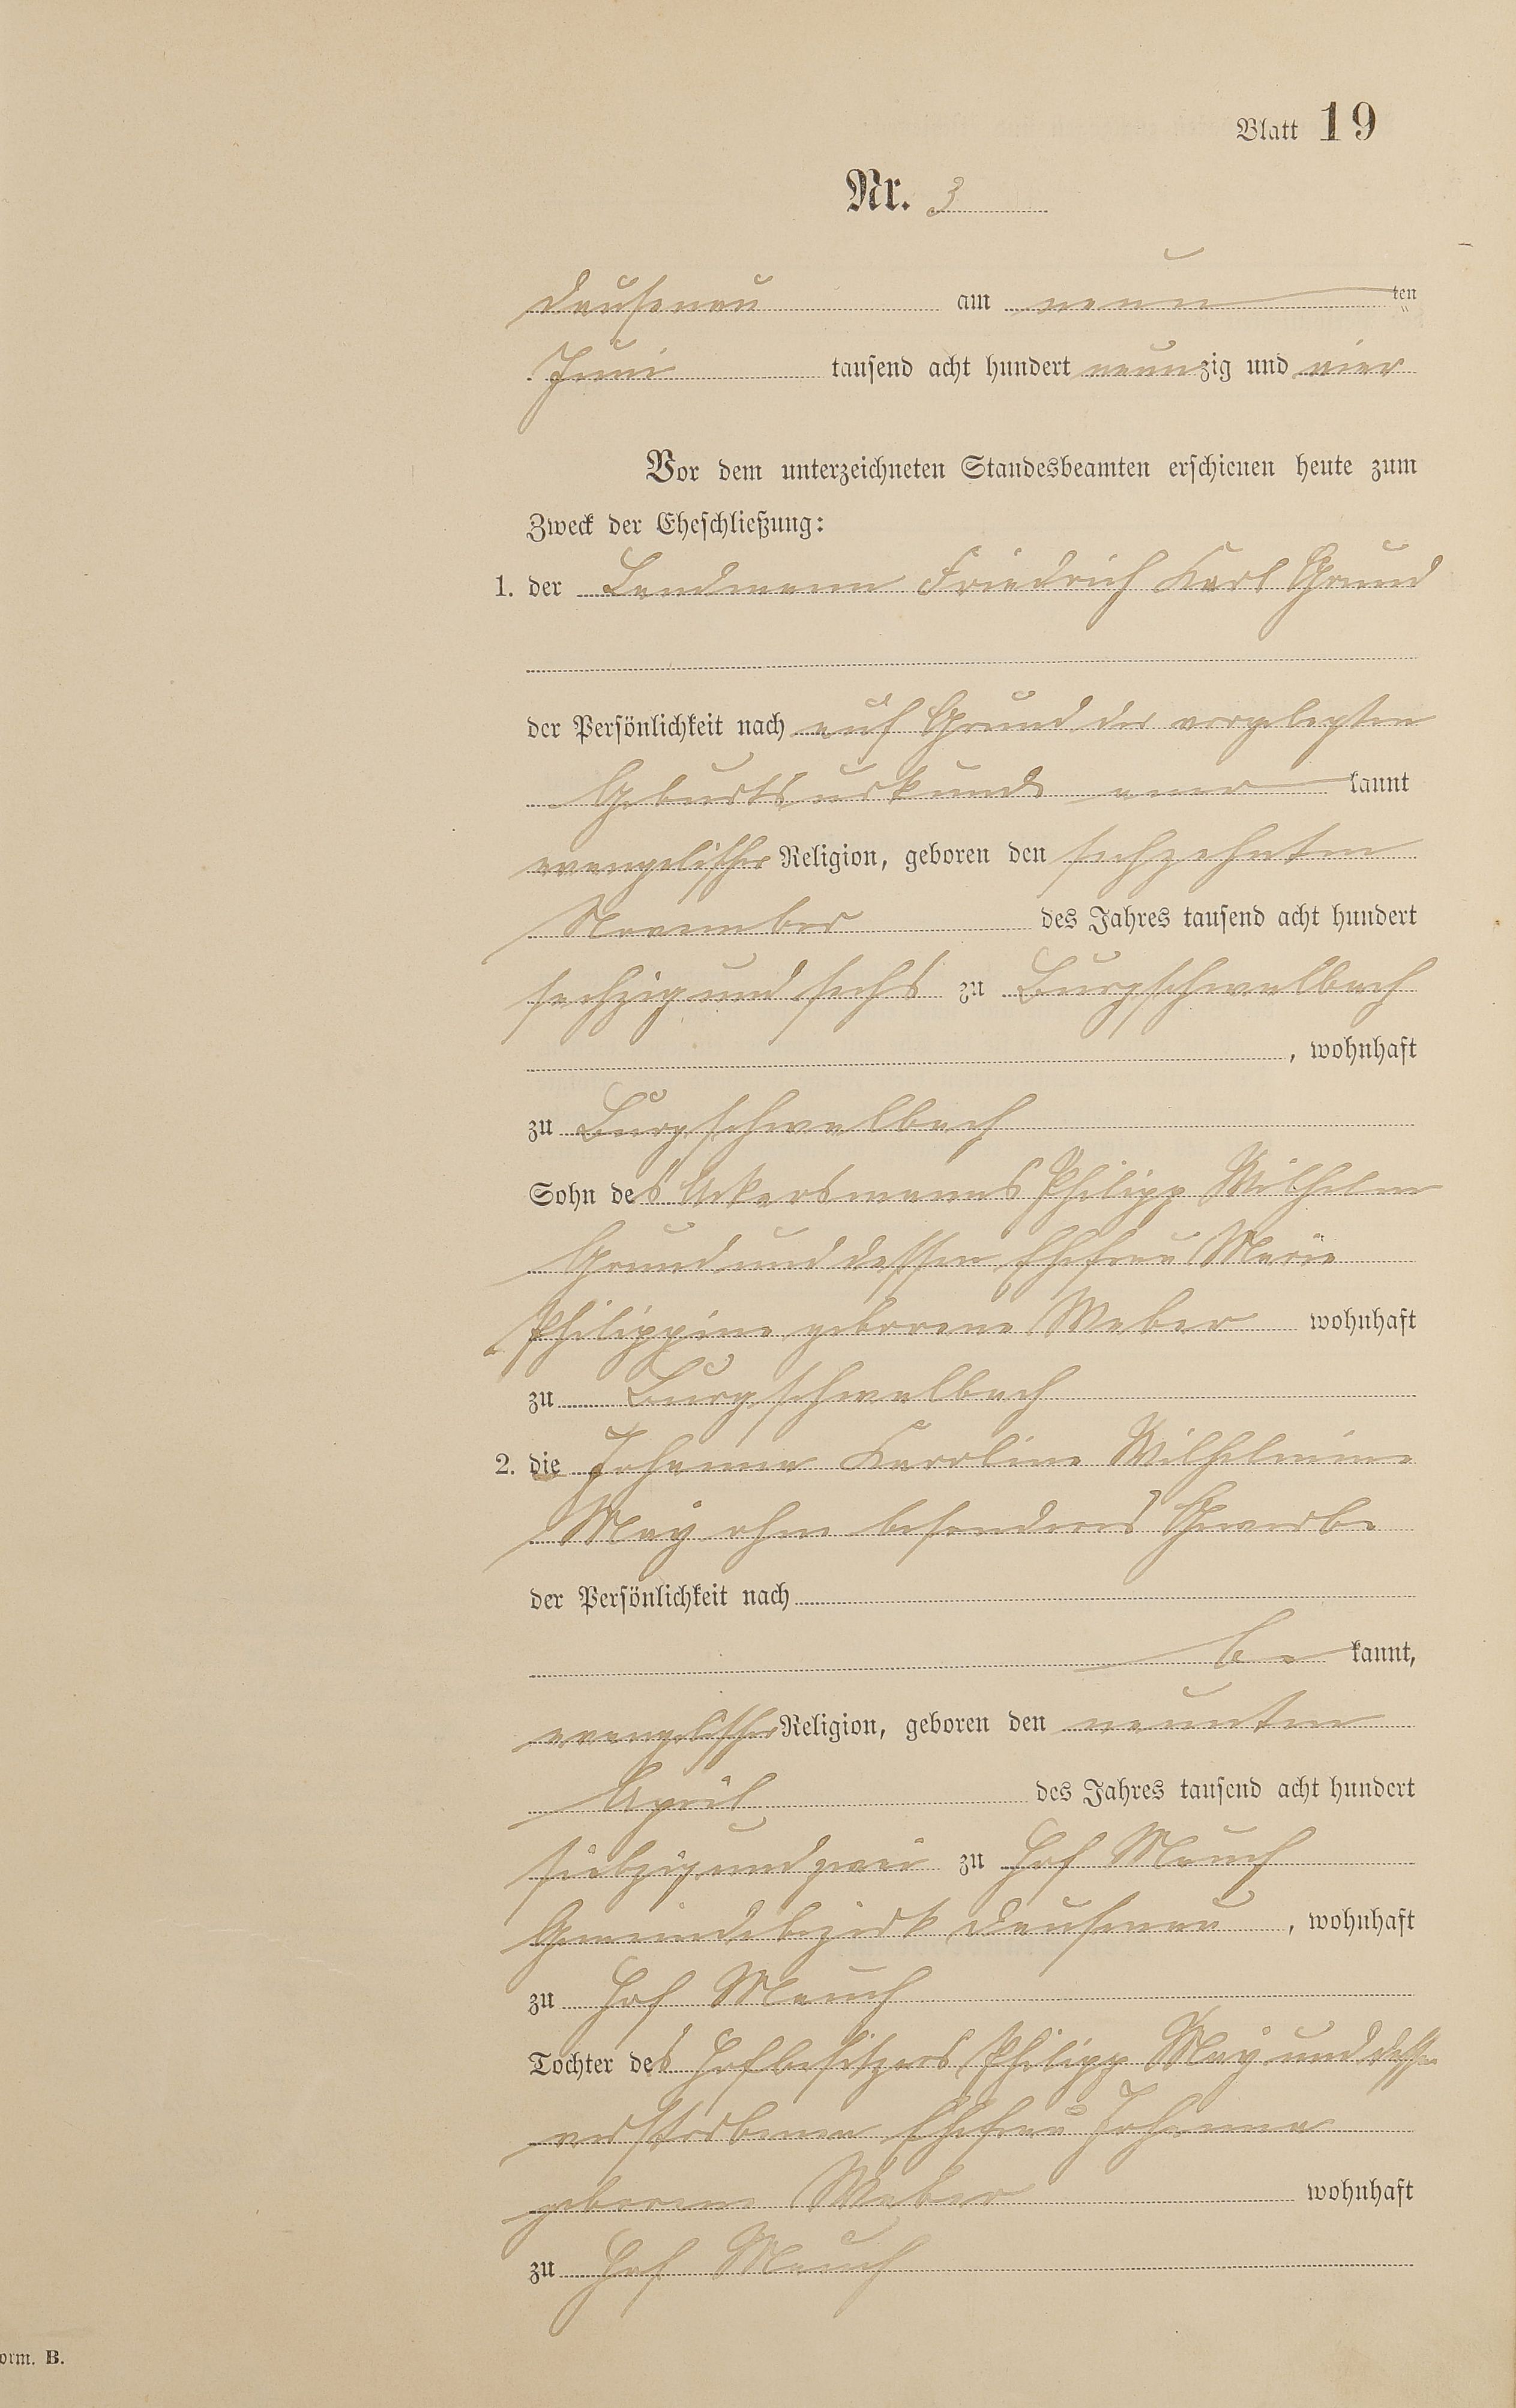 Blatt 19
Nr. 3
Dausenau am neun ten
Juni tausend acht hundert neunzig und vier
Vor dem unterzeichneten Standesbeamten erschienen heute zum
Zweck der Eheschließung:
1. der Landmann Friedrich Karl Grund
der Persönlichkeit nach auf Grund der vorgelegten
Geburtsurkunde aner kannt
evangelischer Religion, geboren den sechzehnten
November des Jahres tausend acht hundert
sechzig und sechs zu Burgschwalbach
, wohnhaft
zu Burgschwalbach
Sohn des Ackersmanns Philipp Wilhelm
Grund und dessen Ehefrau Marie
Philippine geborene Weber wohnhaft
zu Burgschwalbach
2. die Johanna Karoline Wilhelmine
May ohne besonderes Gewerbe
der Persönlichkeit nach
be kannt,
evangelischer Religion, geboren den neunten
April des Jahres tausend acht hundert
siebzig und zwei zu Hof Mauch
Gemeindebezirk Dausenau, wohnhaft
zu Hof Mauch
Tochter des Hofbesitzers Philipp May und dessen
verstorbenen Ehefrau Johanna
geborene Weber wohnhaft
zu Hof Mauch
orm. B.